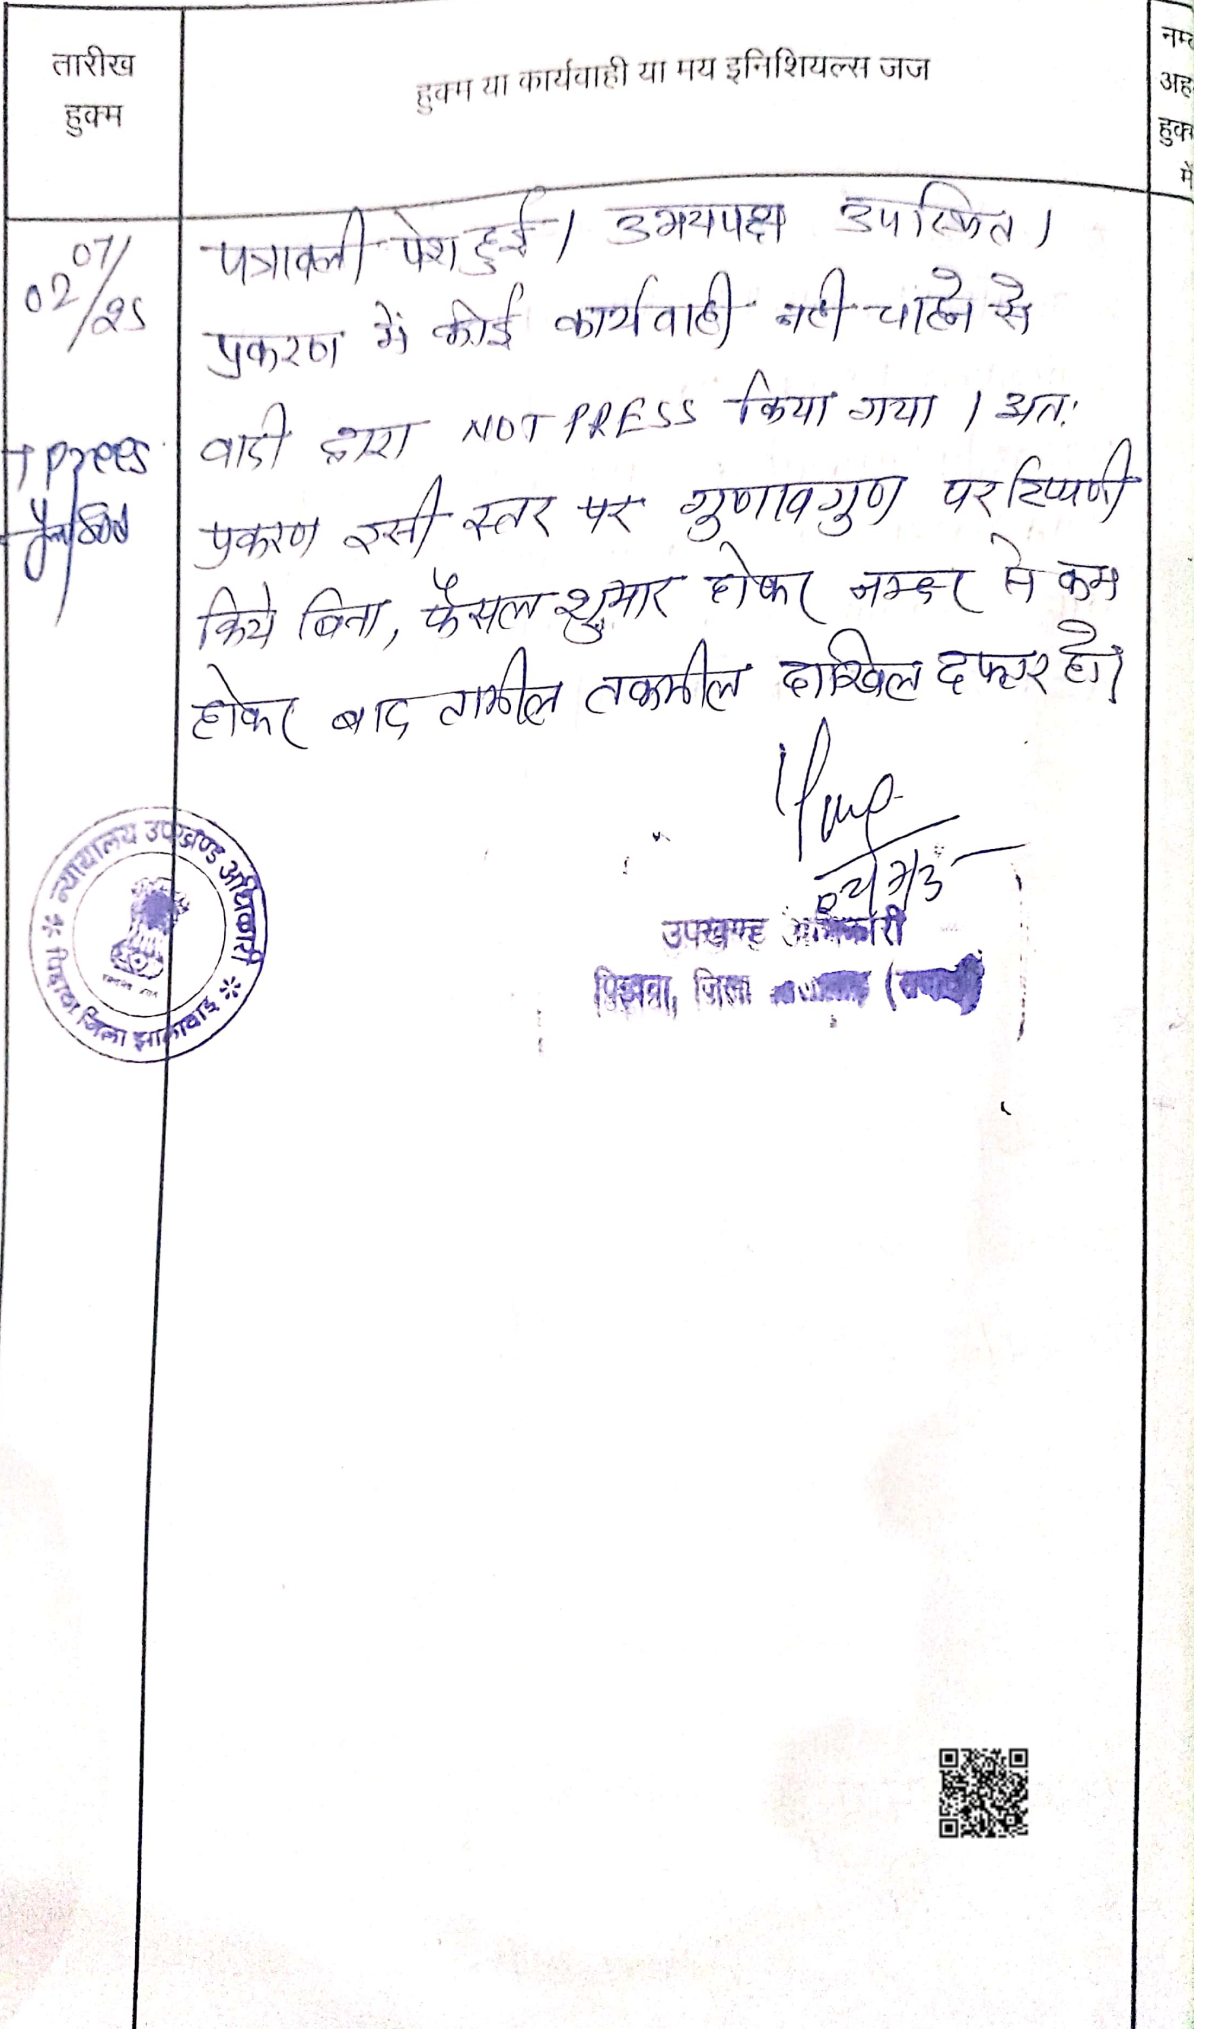 तारीख
हुक्म
हुक्म या कार्यवाही या मय इनिशियल्स जज
नम्ब
अह
हुक्म
में
07/
02/25
पत्रावली पेश हुई। उभयपक्ष उपस्थित।
प्रकरण में कोई कार्यवाही नही चाहने से
वादी द्वारा NOT PRESS किया गया। अतः
प्रकरण इसी स्तर पर गुणावगुण पर टिप्पणी
किये बिना, फैसल शुमार होकर नम्बर से कम
होकर बाद तामील तकमील दाखिल दफ्तर हो।
t prees
न्यायालय उपखण्ड अधिकारी
पिडावा जिला झालावाड़
उपखण्ड अधिकारी
पिड़ावा, जिला